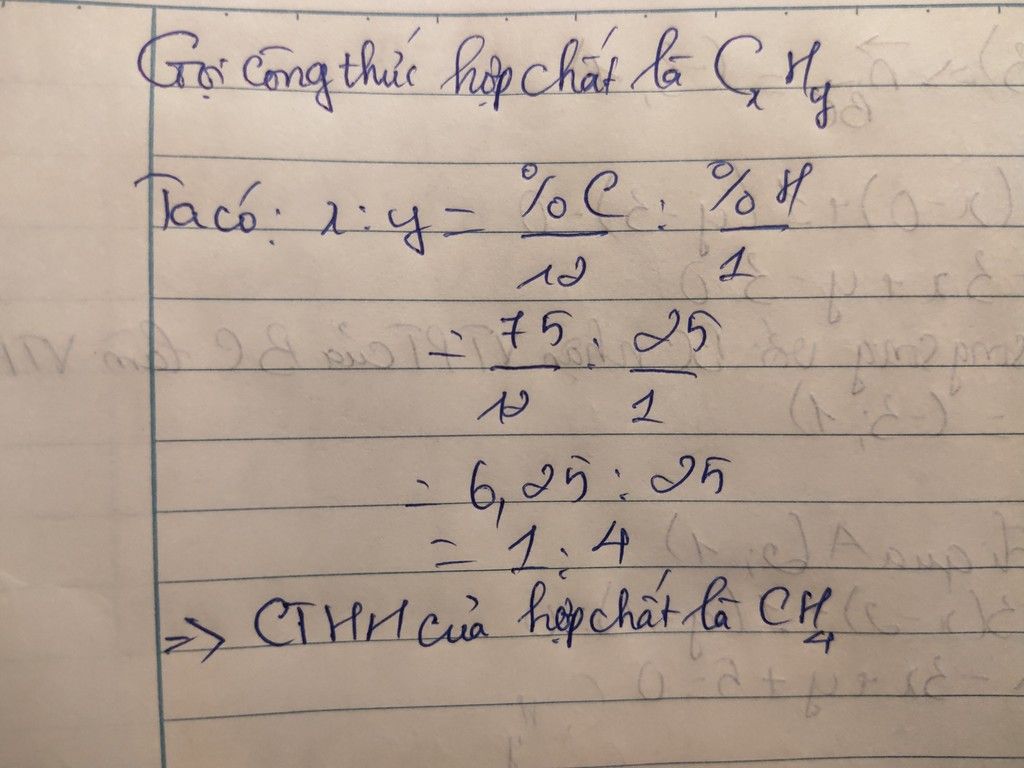 Gọi công thức hợp chất là CxHy
Ta có: x : y = %C/12 : %H/1
= 75/12 : 25/1
= 6,25 : 25
= 1 : 4
=> CTHH của hợp chất là CH4